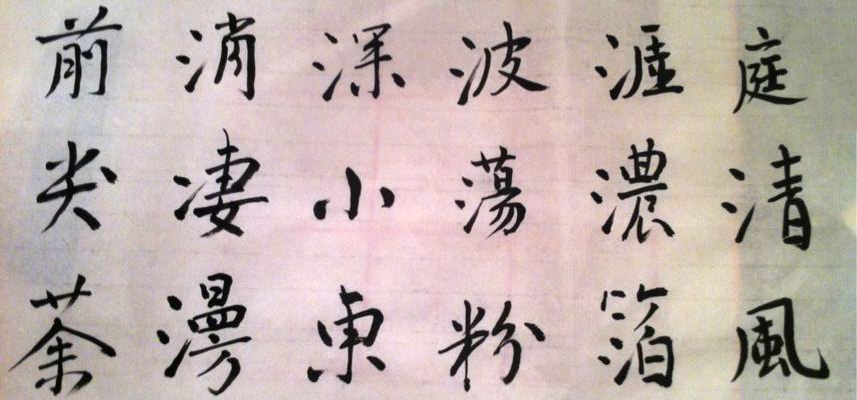 庭清風
涯濃箔
波蕩粉
深小東
消凄漫
前尖茶